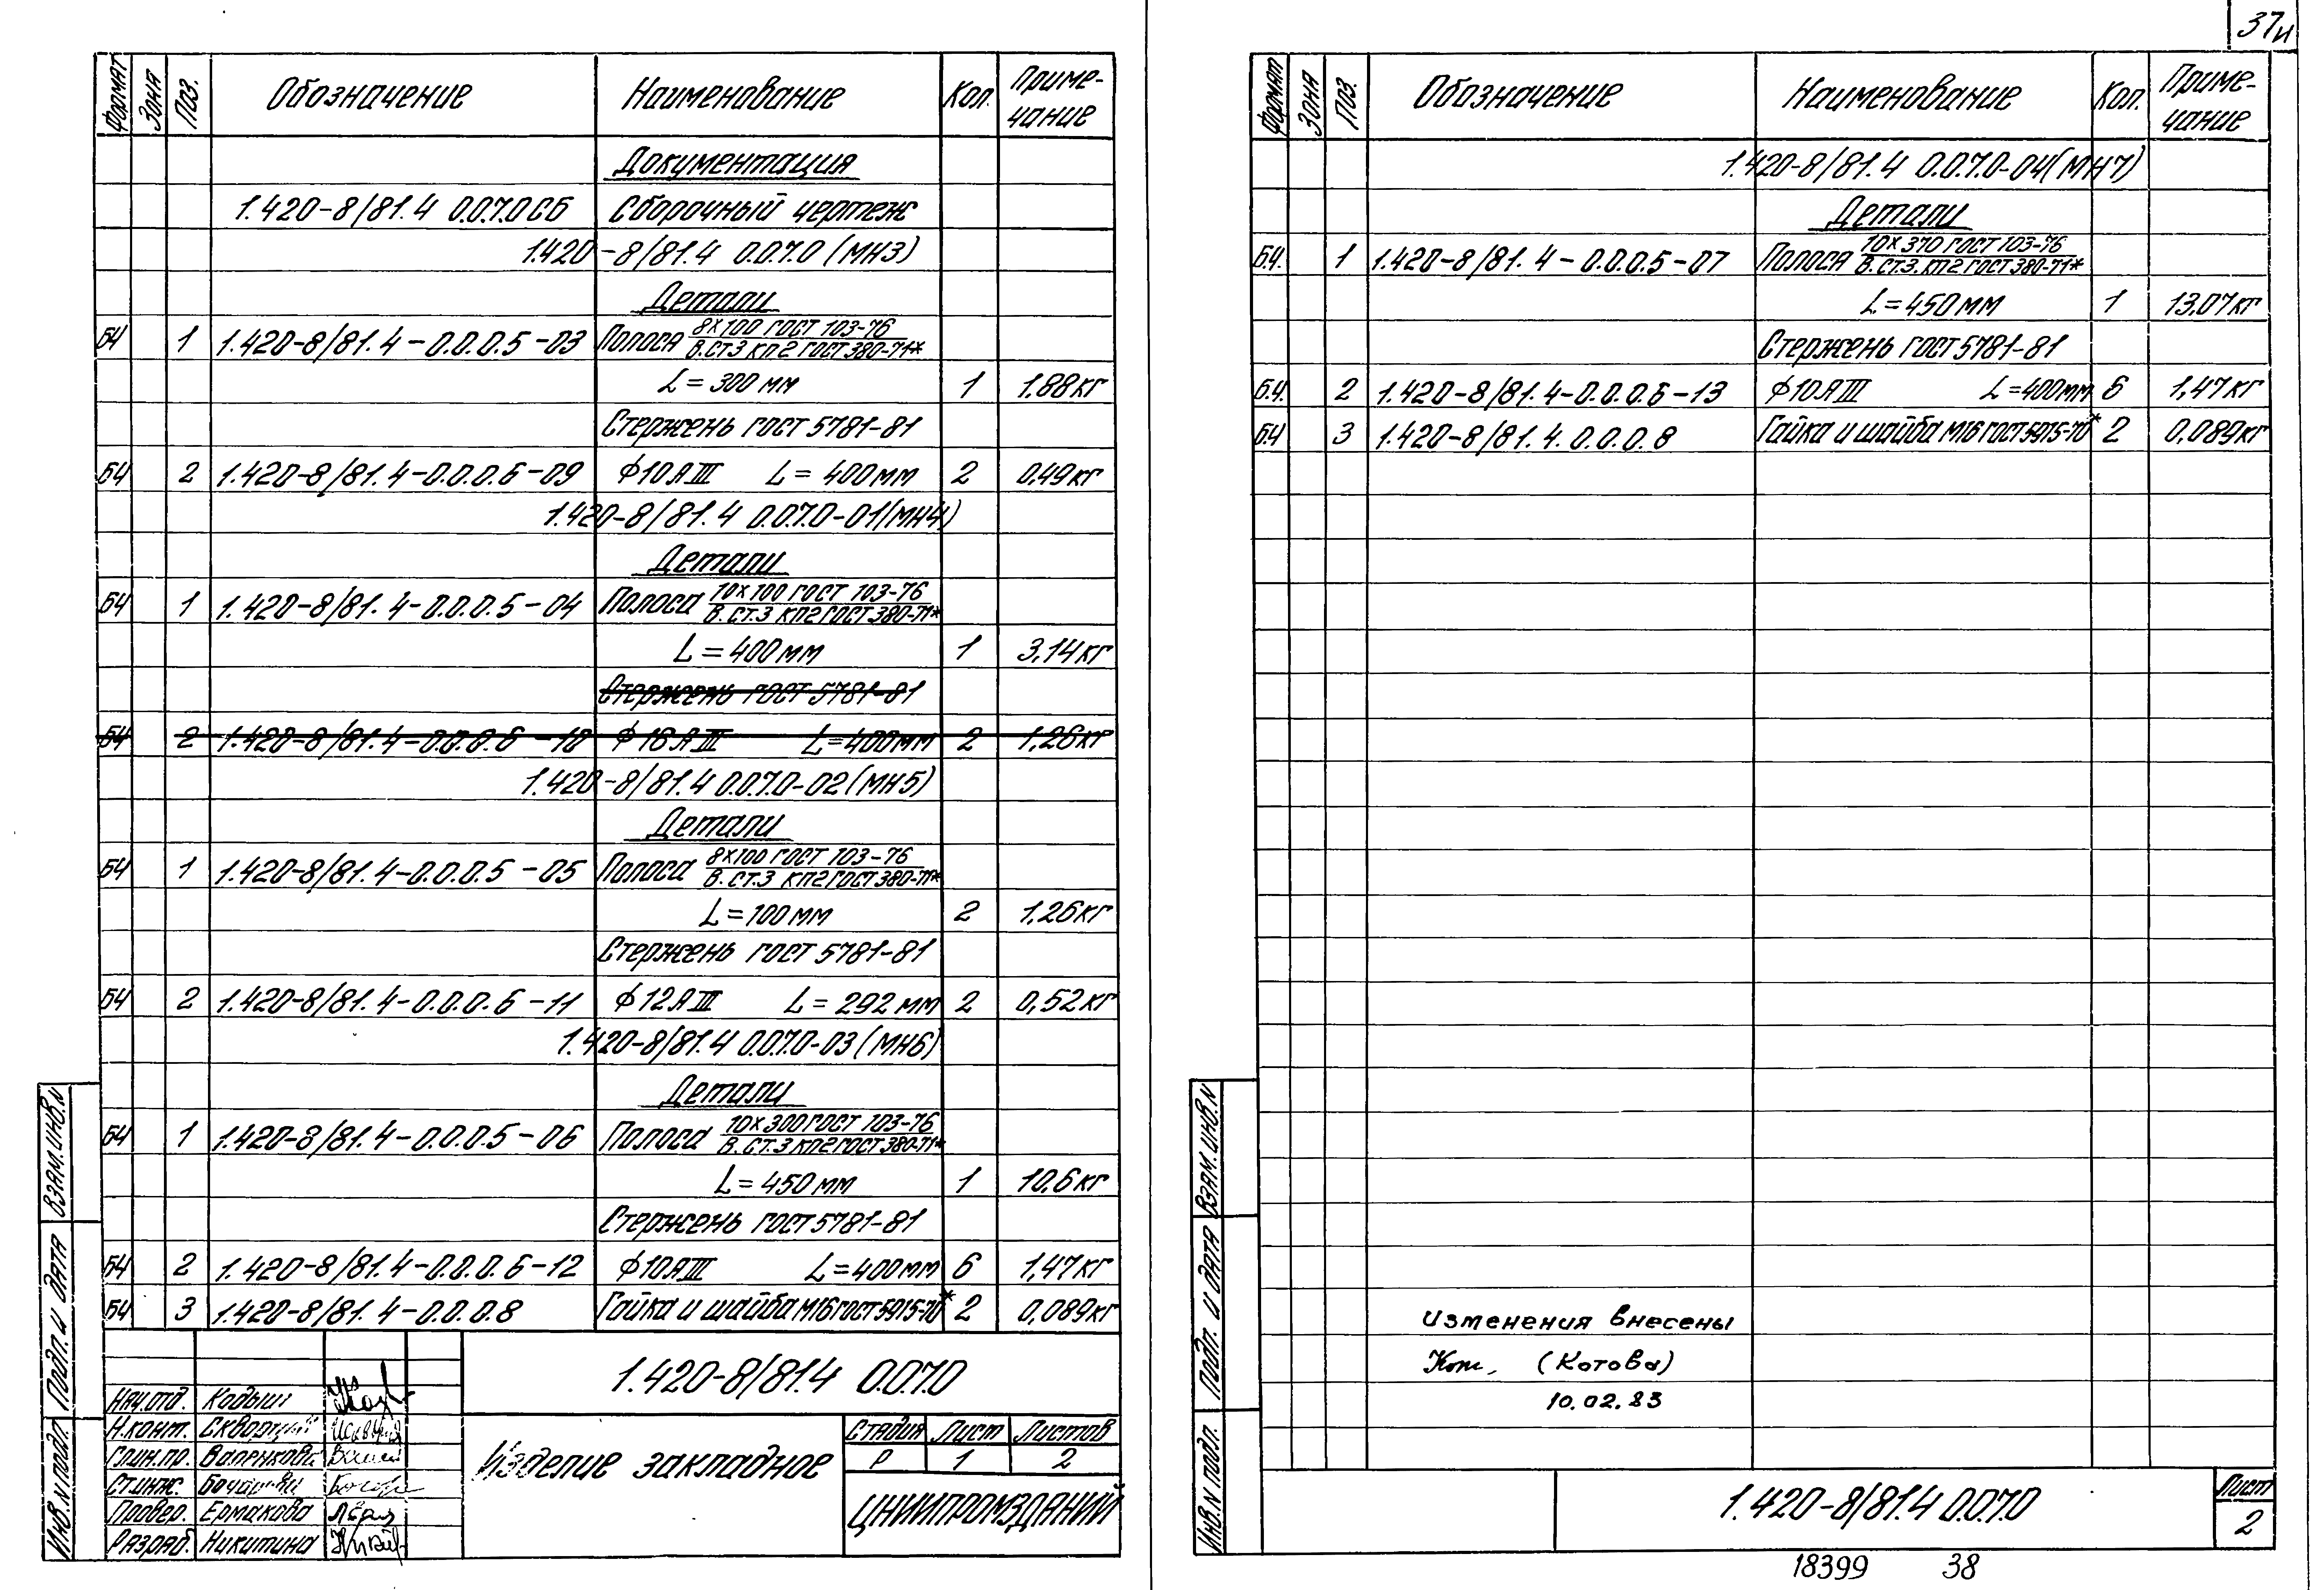 37и
Формат Зона Поз. Обозначение Наименование Кол. Приме-
чание
Документация
1.420-8/81.4 0.0.7.0СБ Сборочный чертеж
1.420-8/81.4 0.0.7.0 (МН3)
Детали
БЧ 1 1.420-8/81.4-0.0.0.5-03 Полоса 8х100 ГОСТ 103-76
В.СТ3 кп2 ГОСТ 380-71*
L=300мм 1 1,88кг
Стержень ГОСТ 5781-81
БЧ 2 1.420-8/81.4-0.0.0.6-09 ф10АIII L=400мм 2 0,49кг
1.420-8/81.4 0.0.7.0-01(МН4)
Детали
БЧ 1 1.420-8/81.4-0.0.0.5-04 Полоса 10х100 ГОСТ 103-76
В.СТ.3 кп2 ГОСТ 380-71*
L=400мм 1 3,14кг
Стержень ГОСТ 5781-81
БЧ 2 1.420-8/81.4-0.0.0.6-10 ф16АIII L=400мм 2 1,26кг
1.420-8/81.4 0.0.7.0-02(МН5)
Детали
БЧ 1 1.420-8/81.4-0.0.0.5-05 Полоса 8х100 ГОСТ 103-76
В.СТ.3 кп2 ГОСТ 380-71*
L=100мм 2 1,26кг
Стержень ГОСТ 5781-81
БЧ 2 1.420-8/81.4-0.0.0.6-11 ф12АIII L=292мм 2 0,52кг
1.420-8/81.4 0.0.7.0-03(МН6)
Детали
БЧ 1 1.420-8/81.4-0.0.0.5-06 Полоса 10х300 ГОСТ 103-76
В.СТ.3 кп2 ГОСТ 380-71*
L=450мм 1 10,6кг
Стержень ГОСТ 5781-81
БЧ 2 1.420-8/81.4-0.0.0.6-12 ф10АIII L=400мм 6 1,47кг
БЧ 3 1.420-8/81.4-0.0.0.8 Гайка и шайба М16 ГОСТ 5915-70* 2 0,089кг
1.420-8/81.4 0.0.7.0
Нач.отд. Кодыш
Н.конт.
Гл.инж.пр.
Ст.инж.
Провер. Ермакова
Разраб. Никитина
Изделие закладное
Стадия Лист Листов
Р 1 2
ЦНИИПРОМЗДАНИЙ
Взам.инв.N
Подп. и дата
Инв.N подл.
Формат Зона Поз. Обозначение Наименование Кол. Приме-
чание
1.420-8/81.4 0.0.7.0-04(МН7)
Детали
Б.Ч. 1 1.420-8/81.4-0.0.0.5-07 Полоса 10х370 ГОСТ 103-76
В.СТ.3.кп2 ГОСТ 380-71*
L=450мм 1 13,07кг
Стержень ГОСТ 5781-81
Б.Ч. 2 1.420-8/81.4-0.0.0.6-13 ф10АIII L=400мм 6 1,47кг
Б.Ч 3 1.420-8/81.4.0.0.0.8 Гайка и шайба М16 ГОСТ 5915-70* 2 0,089кг
Изменения внесены
(Котова)
10.02.83
Взам.инв.N
Подп. и дата
Инв.N подл.
1.420-8/81.4 0.0.7.0
Лист
2
18399 38